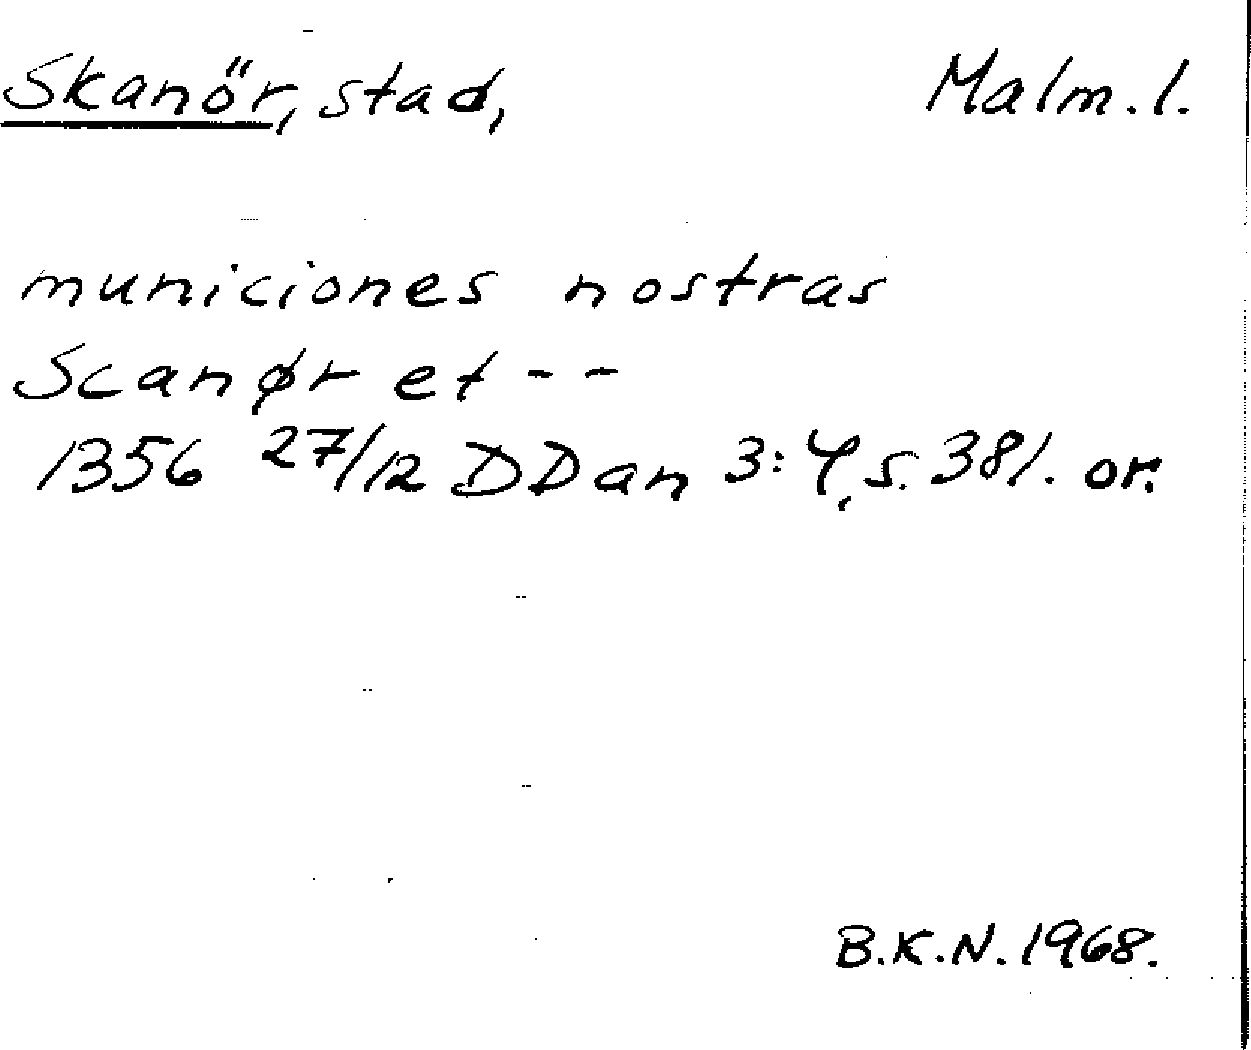 Skanör, stad, Malm. l.
municiones nostras
Scanør et - -
1356 27/12 DDan 3:4, s. 381. or.
B.K.N. 1968.